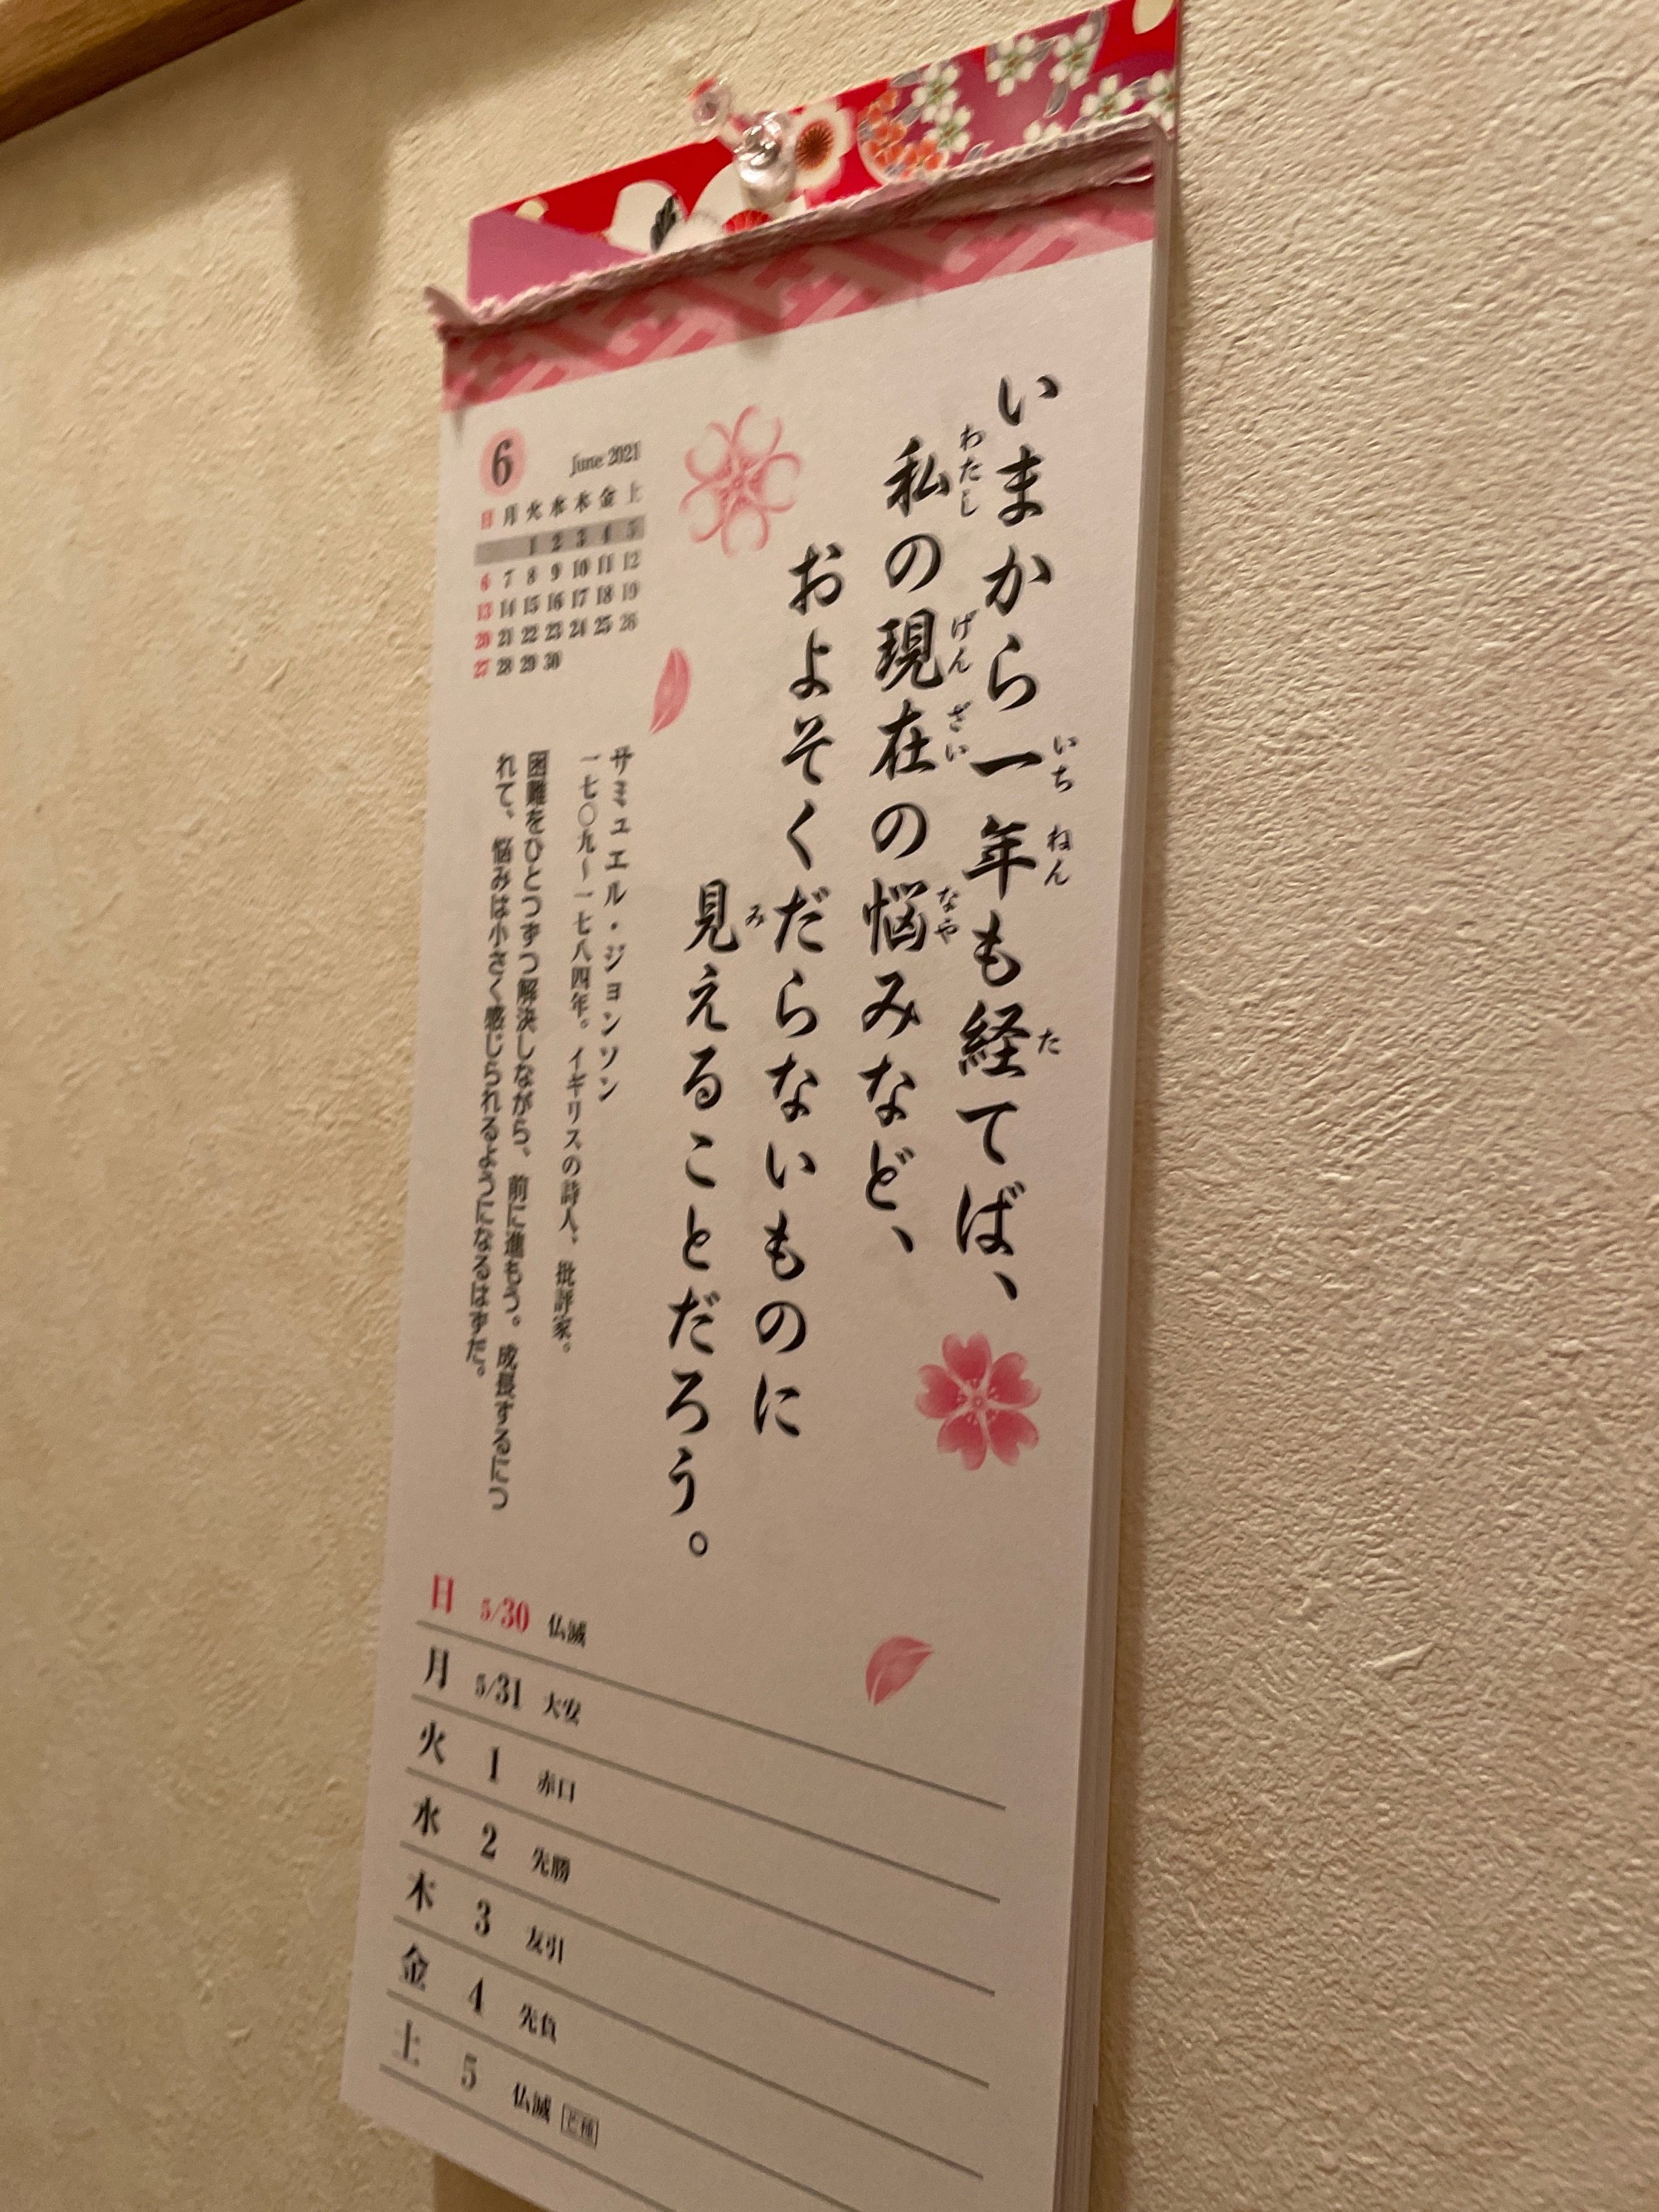 いまから一年も経てば、
私の現在の悩みなど、
およそくだらないものに
見えることだろう。
いち ねん た
わたし げん ざい なや
み
サミュエル・ジョンソン
一七〇九～一七八四年。イギリスの詩人、批評家。
困難をひとつずつ解決しながら、前に進もう。成長するにつ
れて、悩みは小さく感じられるようになるはずだ。
6 June 2021
日 月 火 水 木 金 土
1 2 3 4 5
6 7 8 9 10 11 12
13 14 15 16 17 18 19
20 21 22 23 24 25 26
27 28 29 30
日 5/30 仏滅
月 5/31 大安
火 1 赤口
水 2 先勝
木 3 友引
金 4 先負
土 5 仏滅 芒種